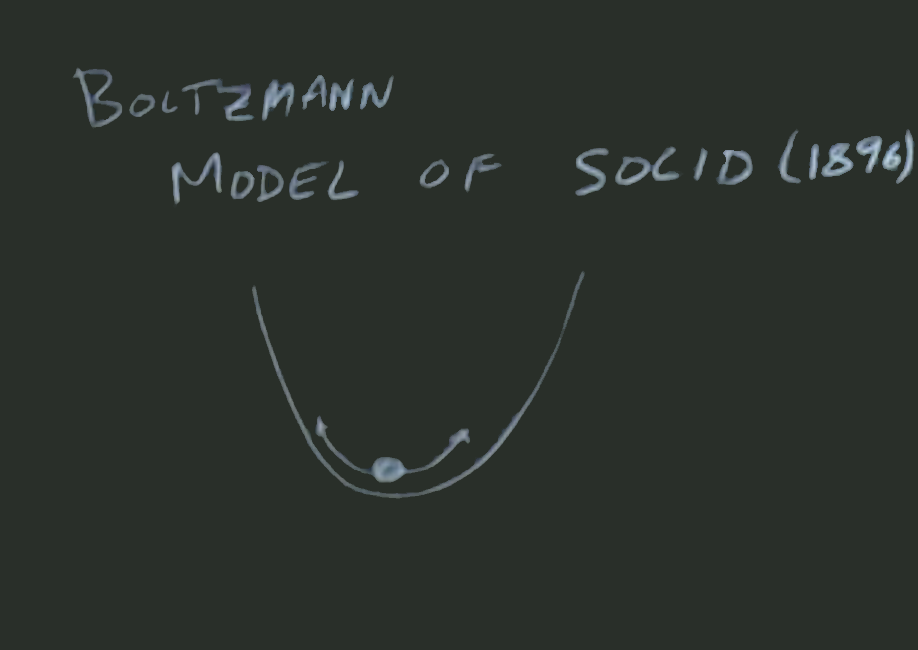 BOLTZMANN
MODEL OF SOLID (1896)